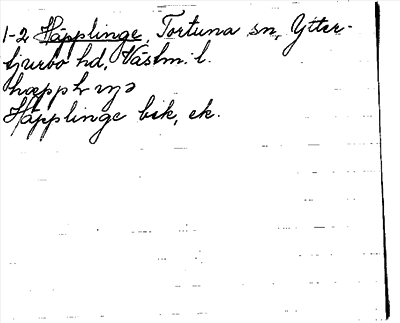 1-2 Häpplinge, Tortuna sn, Ytter-
tjurbo hd, Västm. l.
Häpplinge bik, ek.